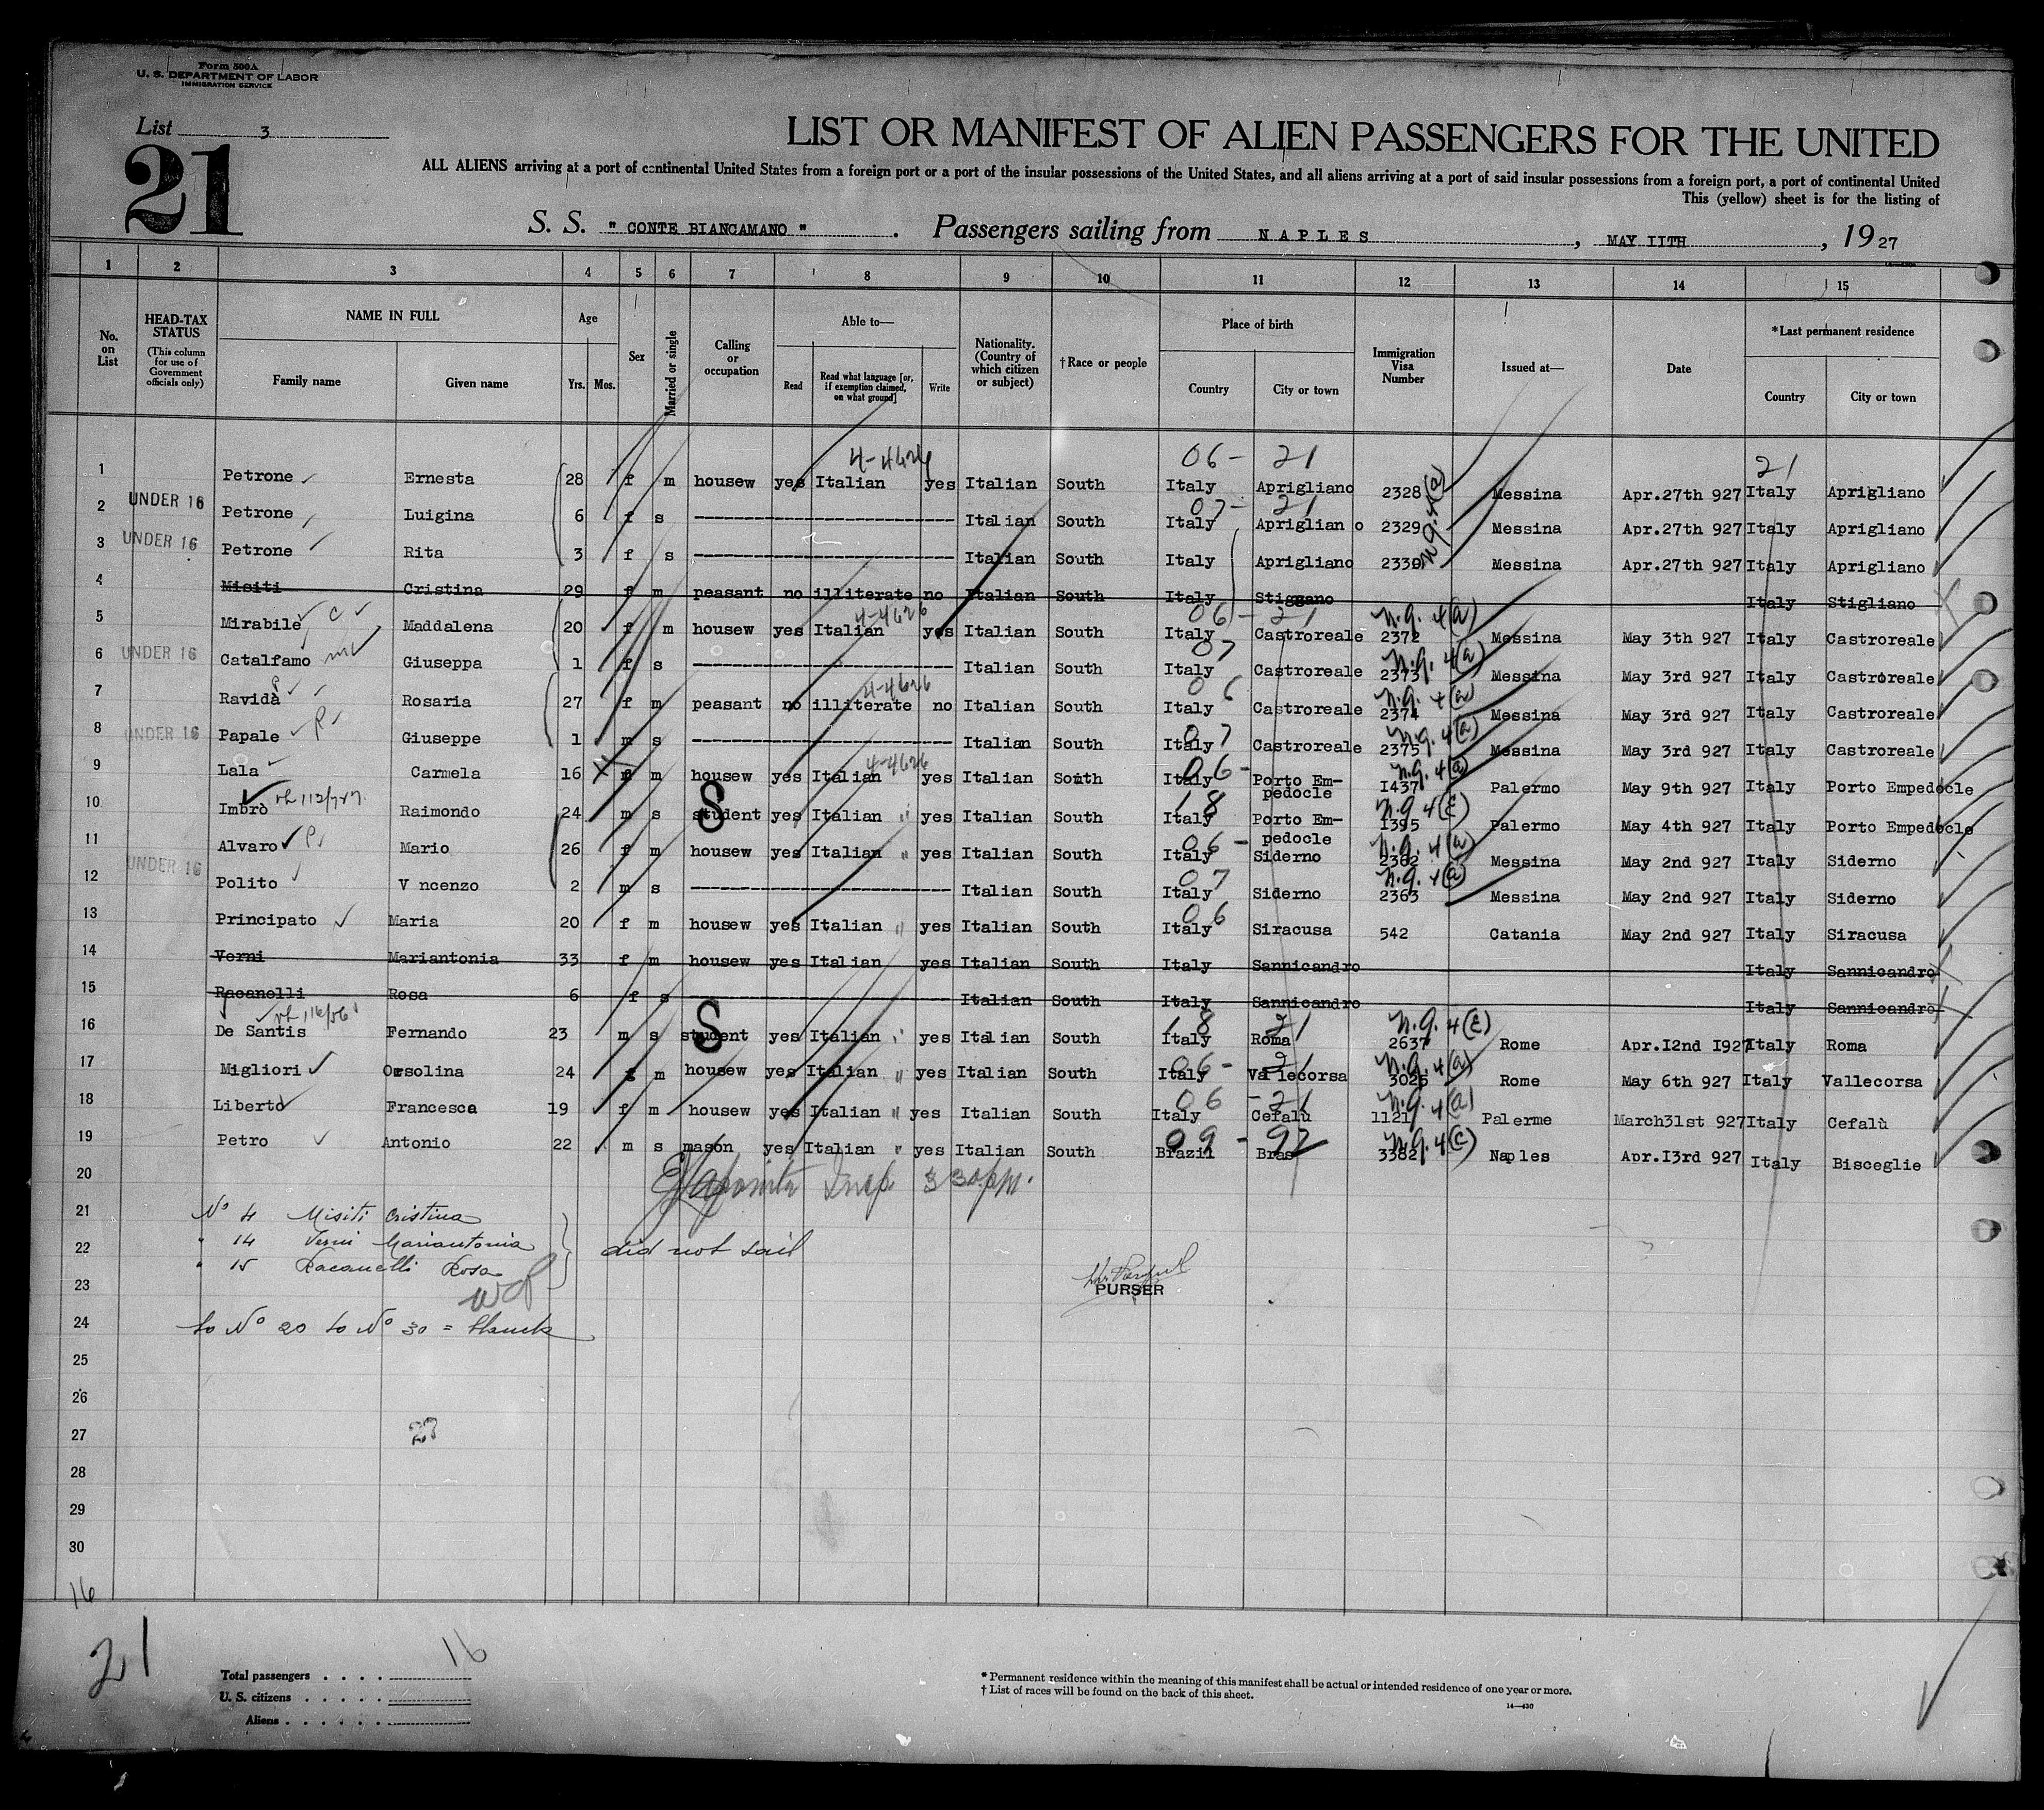 Form 500A
U. S. DEPARTMENT OF LABOR
IMMIGRATION SERVICE
List 3
21
LIST OR MANIFEST OF ALIEN PASSENGERS FOR THE UNITED
ALL ALIENS arriving at a port of continental United States from a foreign port or a port of the insular possessions of the United States, and all aliens arriving at a port of said insular possessions from a foreign port, a port of continental United
This (yellow) sheet is for the listing of
S. S. " CONTE BIANCAMANO " . Passengers sailing from NAPLES , MAY IITH , 19 27
1 2 3 4 5 6 7 8 9 10 11 12 13 14 15
No. on List
HEAD-TAX STATUS (This column for use of Government officials only)
NAME IN FULL Family name Given name
Age Yrs. Mos.
Sex
Married or single
Calling or occupation
Able to— Read Read what language [or, if exemption claimed, on what ground] Write
Nationality. (Country of which citizen or subject)
†Race or people
Place of birth Country City or town
Immigration Visa Number
Issued at—
Date
*Last permanent residence Country City or town
4-4626 06- 21 21
1 Petrone Ernesta 28 f m housew yes Italian yes Italian South Italy Aprigliano 2328 Messina Apr.27th 927 Italy Aprigliano
07- 21
2 UNDER 16 Petrone Luigina 6 f s Italian South Italy Apriglian o 2329 Messina Apr.27th 927 Italy Aprigliano
3 UNDER 16 Petrone Rita 3 f s Italian South Italy Aprigliano 2330 Messina Apr.27th 927 Italy Aprigliano
4 Misiti Cristina 29 f m peasant no illiterate no Italian South Italy Stiggano Italy Stigliano
4-4626 06- 21 n.q. 4(a)
5 Mirabile C Maddalena 20 f m housew yes Italian yes Italian South Italy Castroreale 2372 Messina May 3th 927 Italy Castroreale
07 n.q. 4(a)
6 UNDER 16 Catalfamo Giuseppa 1 f s Italian South Italy Castroreale 2373 Messina May 3rd 927 Italy Castroreale
4-4626 06 n.q. 4(a)
7 Ravidà Rosaria 27 f m peasant no illiterate no Italian South Italy Castroreale 2374 Messina May 3rd 927 Italy Castroreale
07 n.q. 4(a)
8 UNDER 16 Papale Giuseppe 1 m s Italian South Italy Castroreale 2375 Messina May 3rd 927 Italy Castroreale
4-4626 06- n.q. 4(a)
9 Lala Carmela 16 f m housew yes Italian yes Italian South Italy Porto Em-pedocle I437 Palermo May 9th 927 Italy Porto Empedocle
S 18 n.q 4(E)
10 Imbrò Raimondo 24 m s student yes Italian " yes Italian South Italy Porto Em-pedocle I395 Palermo May 4th 927 Italy Porto Empedocle
06- n.q. 4(a)
11 Alvaro Mario 26 f m housew yes Italian " yes Italian South Italy Siderno 2362 Messina May 2nd 927 Italy Siderno
07 n.q. 4(a)
12 UNDER 16 Polito V ncenzo 2 m s Italian South Italy Siderno 2363 Messina May 2nd 927 Italy Siderno
06
13 Principato Maria 20 f m housew yes Italian " yes Italian South Italy Siracusa 542 Catania May 2nd 927 Italy Siracusa
14 Verni Mariantonia 33 f m housew yes Italian yes Italian South Italy Sannicandro Italy Sannicandro
15 Racanelli Rosa 6 f s Italian South Italy Sannicandro Italy Sannicandro
S 18 21 n.q. 4(E)
16 De Santis Fernando 23 m s student yes Italian " yes Italian South Italy Roma 2637 Rome Apr.I2nd I927 Italy Roma
06- 21 n.q. 4(a)
17 Migliori Orsolina 24 f m housew yes Italian " yes Italian South Italy Va lecorsa 3026 Rome May 6th 927 Italy Vallecorsa
06 -21 n.q. 4(a)
18 Liberto Francesca 19 f m housew yes Italian " yes Italian South Italy Cefalù 1121 Palerme March31st 927 Italy Cefalù
09- 92 n.q. 4(c)
19 Petro Antonio 22 m s mason yes Italian " yes Italian South Brazil Bras 3382 Naples Apr.I3rd 927 Italy Bisceglie
20 Insp. 3 30 pm.
21 No 4 Misiti Cristina
22 " 14 Verni Mariantonia did not sail
" 15 Racanelli Rosa
23 PURSER
24 to No 20 to No 30 = blank
25
26
27 27
28
29
30
16
21
Total passengers . . . . 16
U. S. citizens . . . . .
Aliens . . . . . .
* Permanent residence within the meaning of this manifest shall be actual or intended residence of one year or more.
† List of races will be found on the back of this sheet.
14—430